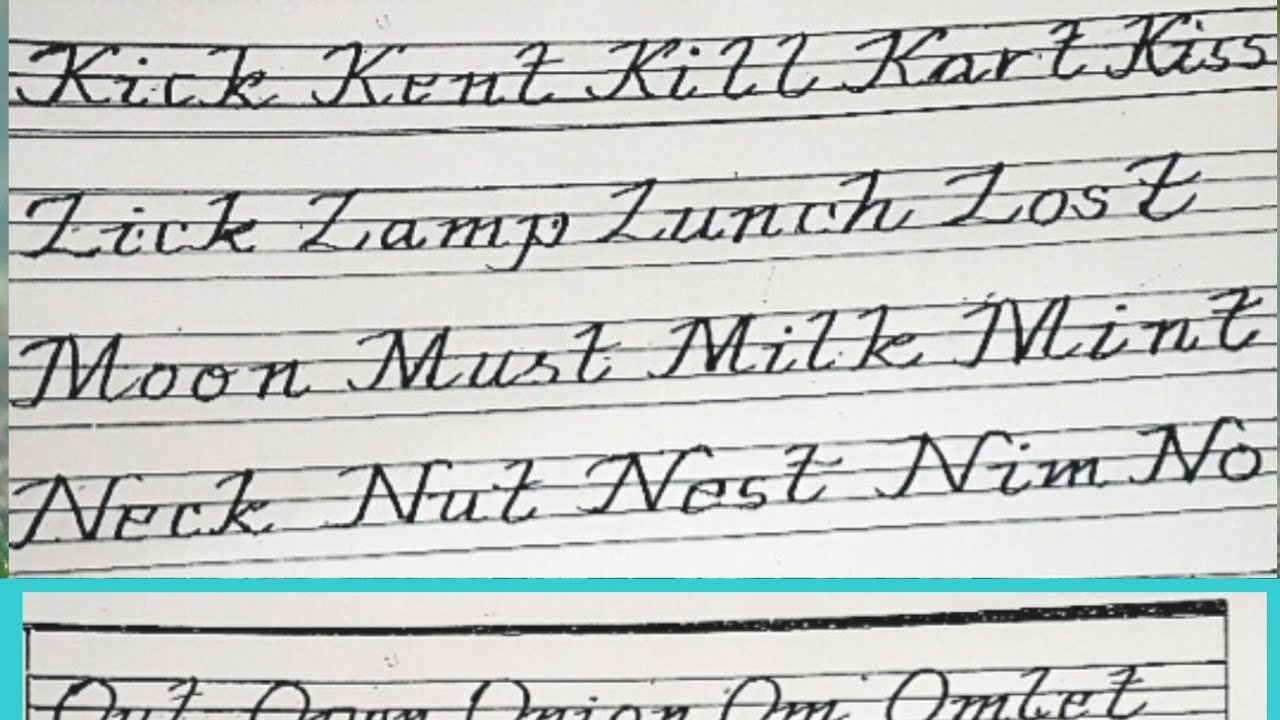 Kick Kent Kill Kart Kiss
Lick Lamp Lunch Lost
Moon Must Milk Mint
Neck Nut Nest Nim No
Out Onion Om Omlet